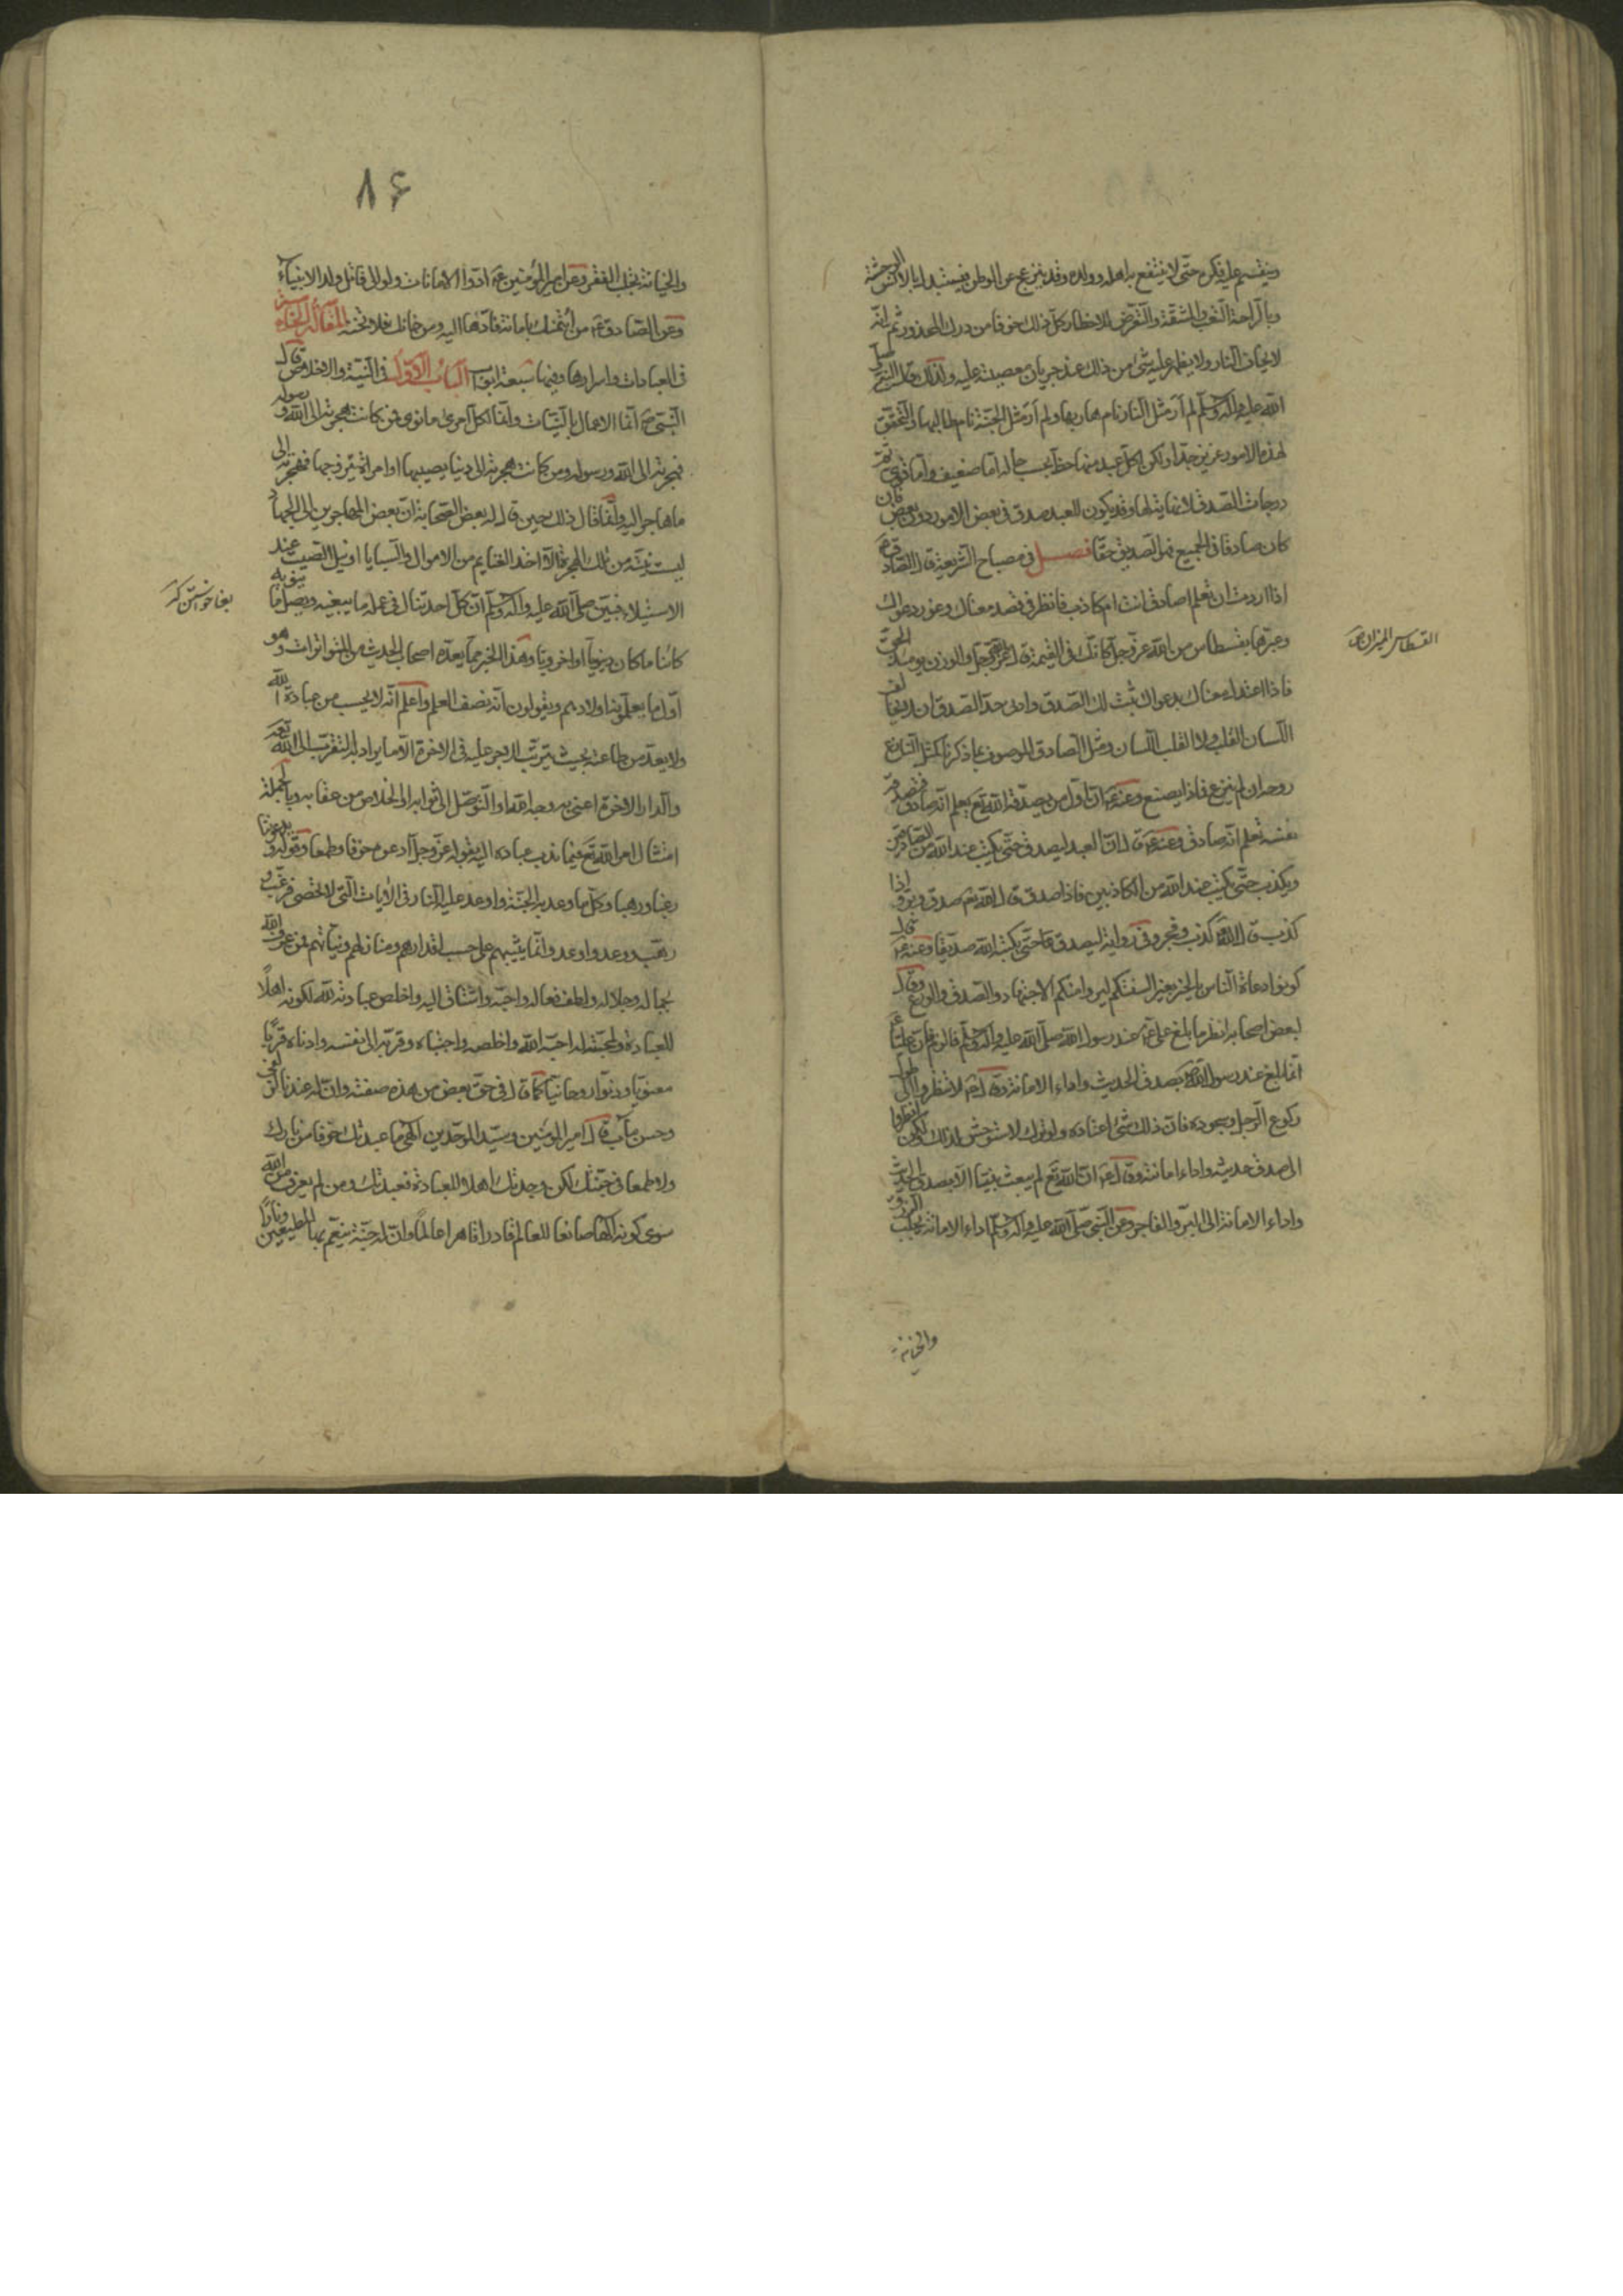 وينقسم عليه فكره حتى لا ينتفع به اهله وولده وقد ينزعج عن الوطن فيستبدل بالانس الوحشة
وبالراحة التعب والمشقة والتعرض للاخطار كل ذلك خوفا من درك المحذور ثم انه
لا يخاف النار ولا يظهر عليه شئ من ذلك عند جريان معصيته عليه ولذلك قال النبي صلى
الله عليه وآله وسلم لم أر مثل النار نام هاربها ولم أر مثل الجنة نام طالبها والتحقق
لهذه الامور عزيز جدا ولكن لكل عبد منها حظ بحسب حاله اما ضعيف واما قوي ثم
درجات الصدق لا نهاية لها وقد يكون للعبد صدق في بعض الامور دون بعض فان
كان صادقا في الجميع فهو الصديق حقا فصل في مصباح الشريعة قال الصادق ع
اذا اردت ان تعلم اصادق انت ام كاذب فانظر في قصد معناك وغور دعواك
وعيرها بقسطاس من الله عز وجل كانك في القيمة قال الله عز وجل والوزن يومئذ الحق
القسطاس الميزان ص
فاذا اعتدل معناك بدعواك ثبت لك الصدق وادنى حد الصدق ان لا يخالف
اللسان القلب ولا القلب اللسان ومثل الصادق الموصوف بما ذكرنا كمثل النازع
روحه ان لم ينزع فماذا يصنع وعنه ع ان اول من يصدقه الله تع يعلم انه صادق فتصدقه
نفسه تعلم انه صادق وعنه ع قال ان العبد ليصدق حتى يكتب عند الله من الصادقين
ويكذب حتى يكتب عند الله من الكاذبين فاذا صدق قال الله تع صدق وبر واذا
كذب قال الله كذب وفجر وفي رواية ليصدق حتى يكتبه الله صديقا وعنه ع قال
كونوا دعاة الناس بالخير بغير السنتكم ليروا منكم الاجتهاد والصدق والورع وقال
لبعض اصحابه انظر ما بلغ علي ع عند رسول الله صلى الله عليه وآله وسلم فالزمه فان عليا ع
انما بلغ عند رسول الله بصدق الحديث واداء الامانة وقال ع لا تنظروا الى طول
ركوع الرجل وسجوده فان ذلك شئ اعتاده ولو تركه لاستوحش لذلك ولكن انظروا
الى صدق حديثه واداء امانته وقال ع ان الله تع لم يبعث نبيا الا بصدق الحديث
واداء الامانة الى البر والفاجر وعن النبي صلى الله عليه وآله وسلم اداء الامانة يجلب الرزق
والخيانة
۸۶
والخيانة تجلب الفقر وعن امير المؤمنين ع ادوا الامانات ولو الى قاتل ولد الانبياء
وعن الصادق ع من ائتمنك بامانة فادها اليه ومن خانك فلا تخنه المقالة الخامسة
في العبادات واسرارها وفيها سبعة ابواب الباب الاول في النية والاخلاص قال
النبي ص انما الاعمال بالنيات وانما لكل امرئ ما نوى فمن كانت هجرته الى الله ورسوله
فهجرته الى الله ورسوله ومن كانت هجرته الى دنيا يصيبها او امراة يتزوجها فهجرته الى
ما هاجر اليه وانما قال ذلك حين قال له بعض الصحابة ان بعض المهاجرين الى الجهاد
ليست نيته من تلك الهجرة الا اخذ الغنايم من الاموال والسبايا او نيل الصيت عند
الاستيلاء فبين صلى الله عليه وآله وسلم ان كل احد ينال في عمله ما يبغيه ويصل ما ينويه
بغا خواستن كز
كائنا ما كان دنيويا او اخرويا وهذا الخبر مما يعده اصحاب الحديث من المتواترات وهو
اول ما يعلمونه اولادهم ويقولون انه نصف العلم واعلم انه لا يحسب من عبادة الله
ولا يعد من طاعته بحيث يترتب الاجر عليه في الاخرة الا ما يراد به التقرب الى الله تعه
والدار الاخرة اعني به وجه الله او التوصل الى ثوابه او الخلاص من عقابه وبالجملة
امتثال امر الله تع فيما ندب عباده اليه بقوله عز وجل ادعوه خوفا وطمعا وقوله ويدعوننا
رغبا ورهبا وكل ما وعد به الجنة واوعد عليه النار في الايات التي لا تحصى فرغب و
رهب ووعد واوعد وانما يثيبهم على حسب اقدارهم ومنازلهم ونياتهم فمن عرف الله
بجماله وجلاله ولطف فعاله واحبه واشتاق اليه واخلص عبادته لله لكونه اهلا
للعبادة ولمحبته له احبه الله واخلصه واجتباه وقربه الى نفسه وادناه قربا
معنويا ودنوا روحانيا كما قال في حق بعض من هذه صفته وان له عندنا لزلفى
وحسن مآب قال امير المؤمنين وسيد الموحدين الهي ما عبدتك خوفا من نارك
ولا طمعا في جنتك لكن وجدتك اهلا للعبادة فعبدتك ومن لم يعرف من الله
سوى كونه الها صانعا للعالم قادرا قاهرا عالما وان له جنة ينعم بها المطيعين ونارا